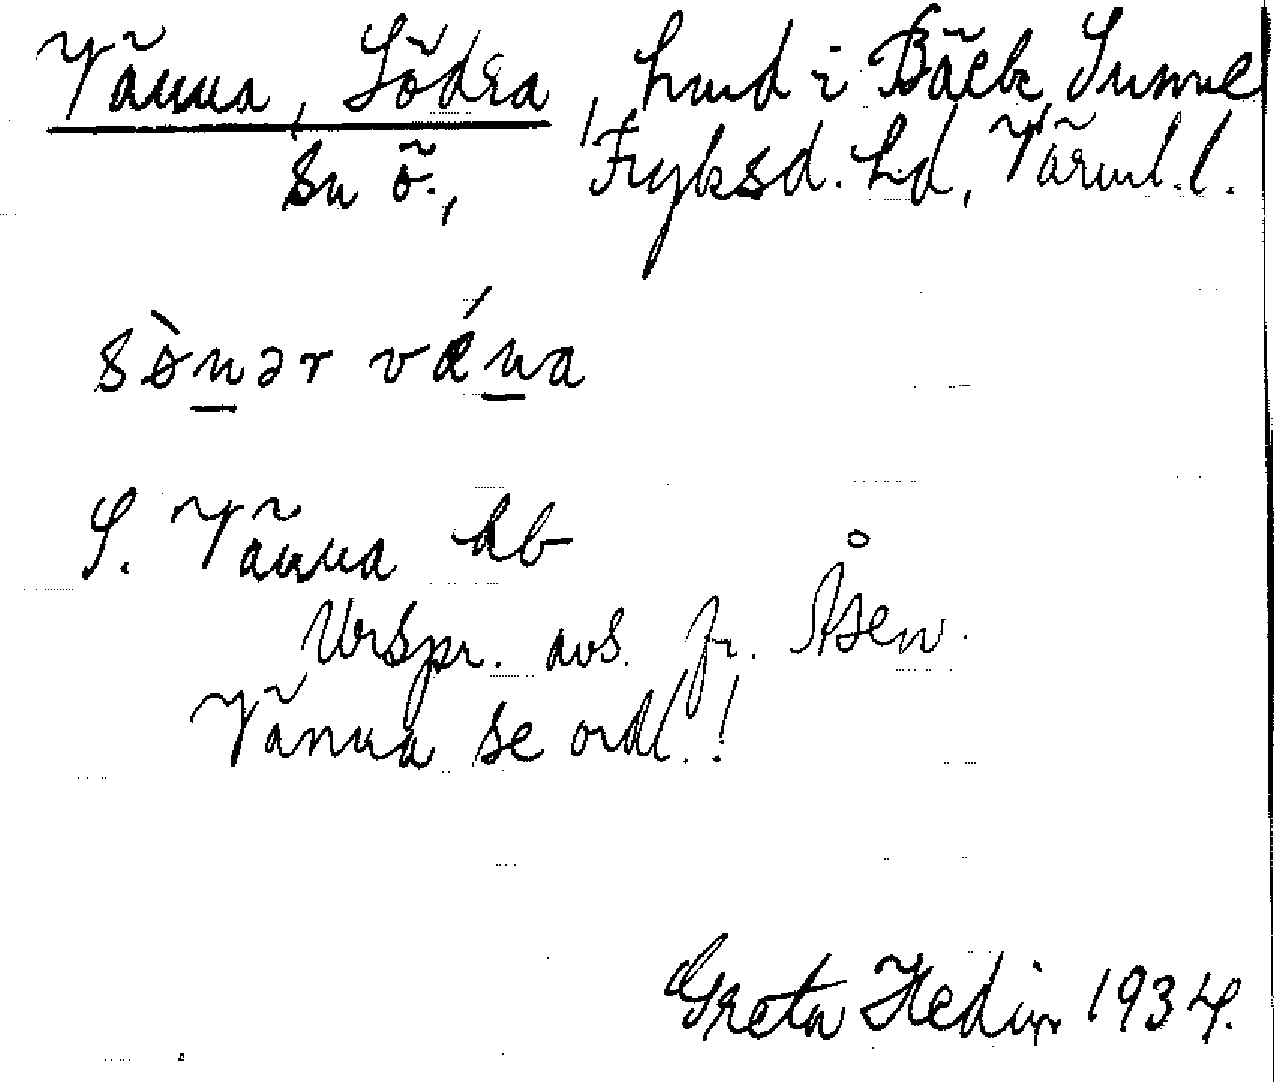 Vänna, Södra, hmd i Bäck, Sunne
sn ö., Fryksd. hd, Värml. l.
sø̀nər vǽna
S. Vänna hb
Urspr. avs. fr. Åsen.
Vänna se ordl.!
Greta Hedin 1934.